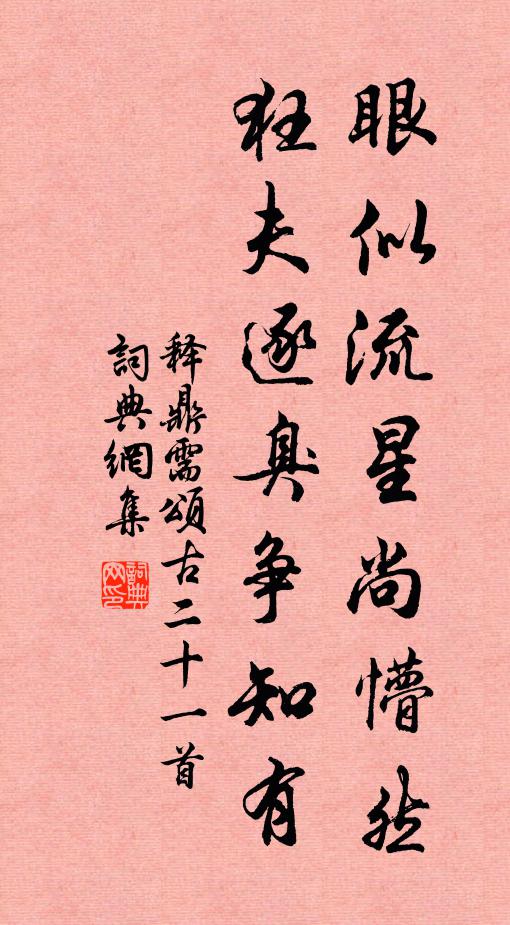 眼似流星尚懵然
狂夫逐臭争知有
释鼎需頌古二十一首
詞典網集
詞典網印